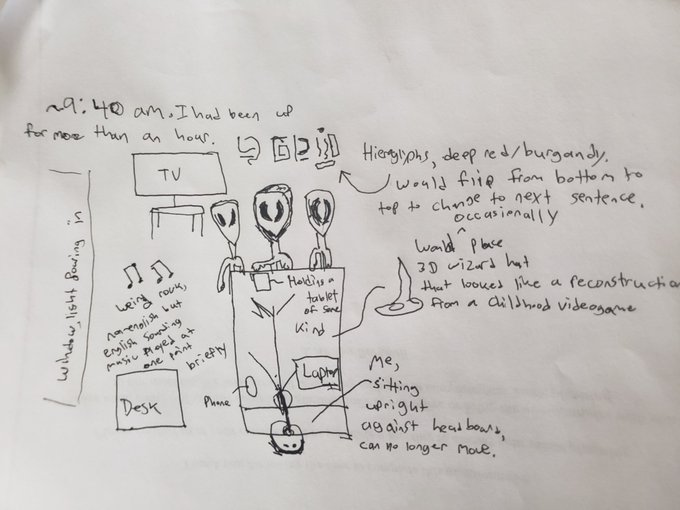 ~9:40 am. I had been up
for more than an hour.
TV
Hieroglyphs, deep red/burgandy.
would flip from bottom to
top to change to next sentence.
occasionally
Would place
3D wizard hat
that looked like a reconstruction
from a childhood videogame
Window, light Pouring in
weird rock,
non-english but
english sounding
music played at
one point
briefly
Holding a
tablet
of some
kind
Desk
Phone
Laptop
Me,
sitting
upright
against headboard,
can no longer move.